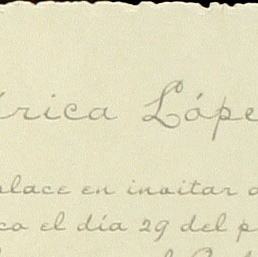 rica Lópe
place en invitar a
co el día 29 del p